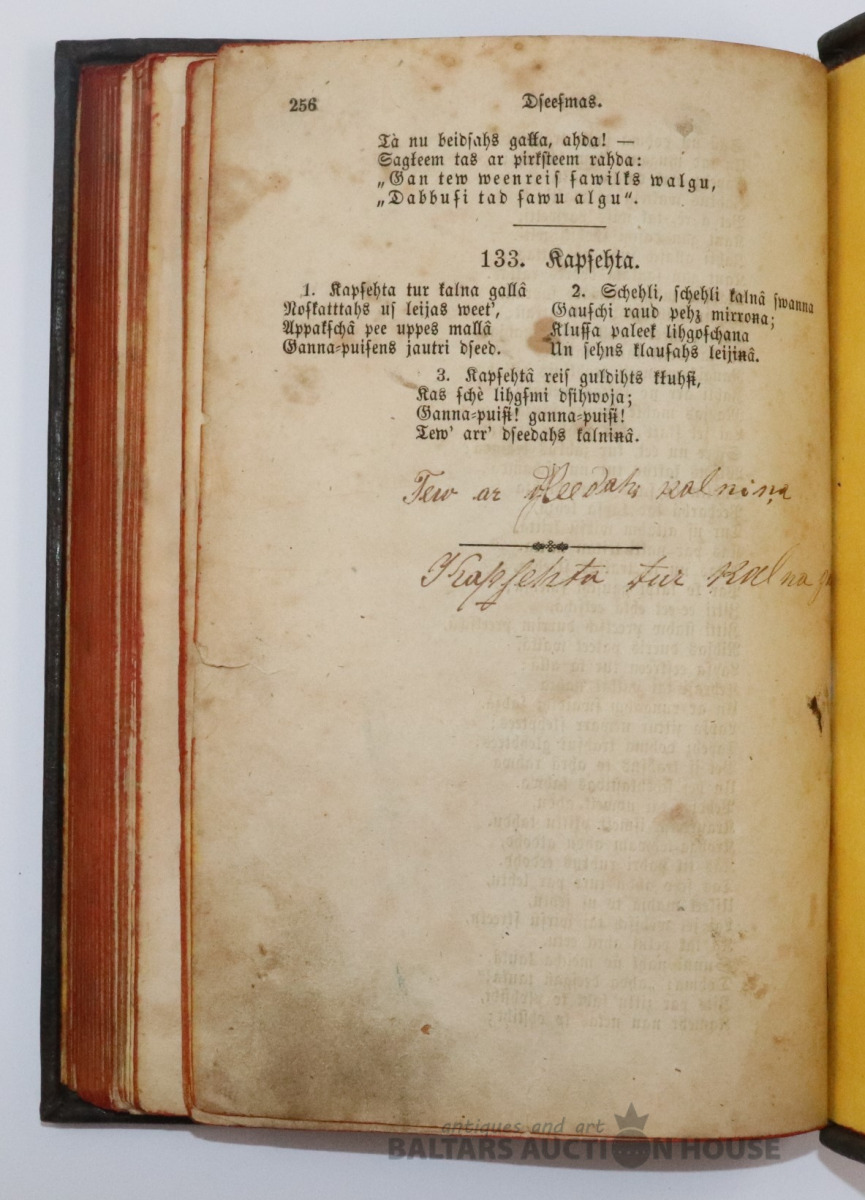 256 Dſeeſmas.
Tà nu beidſahs galka, ahda! —
Sagkeem tas ar pirkſteem rahda:
„Gan tew weenreiſ ſawilks walgu,
„Dabbuſi tad ſawu algu“.
133. Kapſehta.
1. Kapſehta tur kalna gallâ
Noſkatttahs uſ leijas weet',
Appakſchâ pee uppes mallâ
Ganna-puiſens jautri dſeed.
2. Schehli, ſchehli kalnâ ſwanna
Gauſchi raud pehz mirrona;
Kluſſa paleek lihgoſchana
Un ſehns klauſahs leijinâ.
3. Kapſehtâ reiſ guldihts kluhſi,
Kas ſchè lihgſmi dſihwoja;
Ganna-puiſi! ganna-puiſi!
Tew' arr' dſeedahs kalninâ.
Tew ar dſeedahs kalniņa
Kapſehta tur kalna
antiques and art
BALTARS AUCTION HOUSE